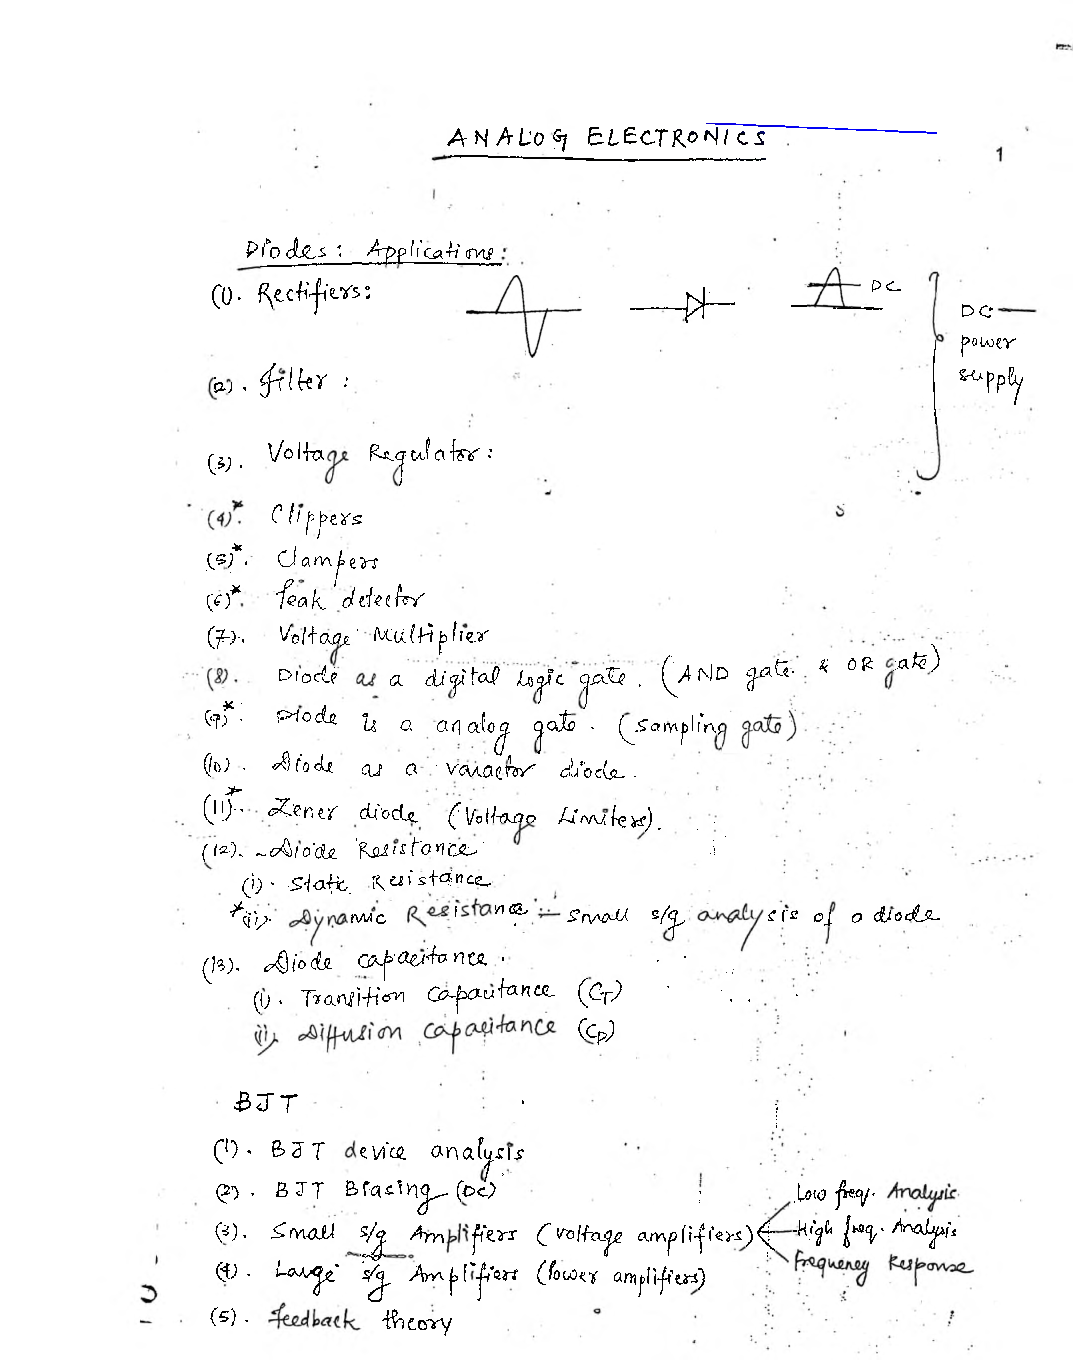 ANALOG ELECTRONICS
1
Diodes: Applications:
(1). Rectifiers:
DC
DC
power
supply
(2). Filter:
(3). Voltage Regulator:
(4)*. Clippers
(5)*. Clampers
(6)*. Peak detector
(7). Voltage Multiplier
(8). Diode as a digital Logic gate. (AND gate & OR gate)
(9)*. Diode is a analog gate. (Sampling gate)
(10). Diode as a varactor diode.
(11)*. Zener diode (Voltage Limiters).
(12). Diode Resistance
(i). Static Resistance
*(ii). Dynamic Resistance :- small s/g analysis of a diode
(13). Diode capacitance.
(i). Transition Capacitance (CT)
(ii). Diffusion Capacitance (CD)
BJT
(1). BJT device analysis
(2). BJT Biasing (DC)
(3). Small s/g Amplifiers (Voltage amplifiers)
Low freq. Analysis
High freq. Analysis
Frequency Response
(4). Large s/g Amplifiers (Power amplifiers)
(5). Feedback theory